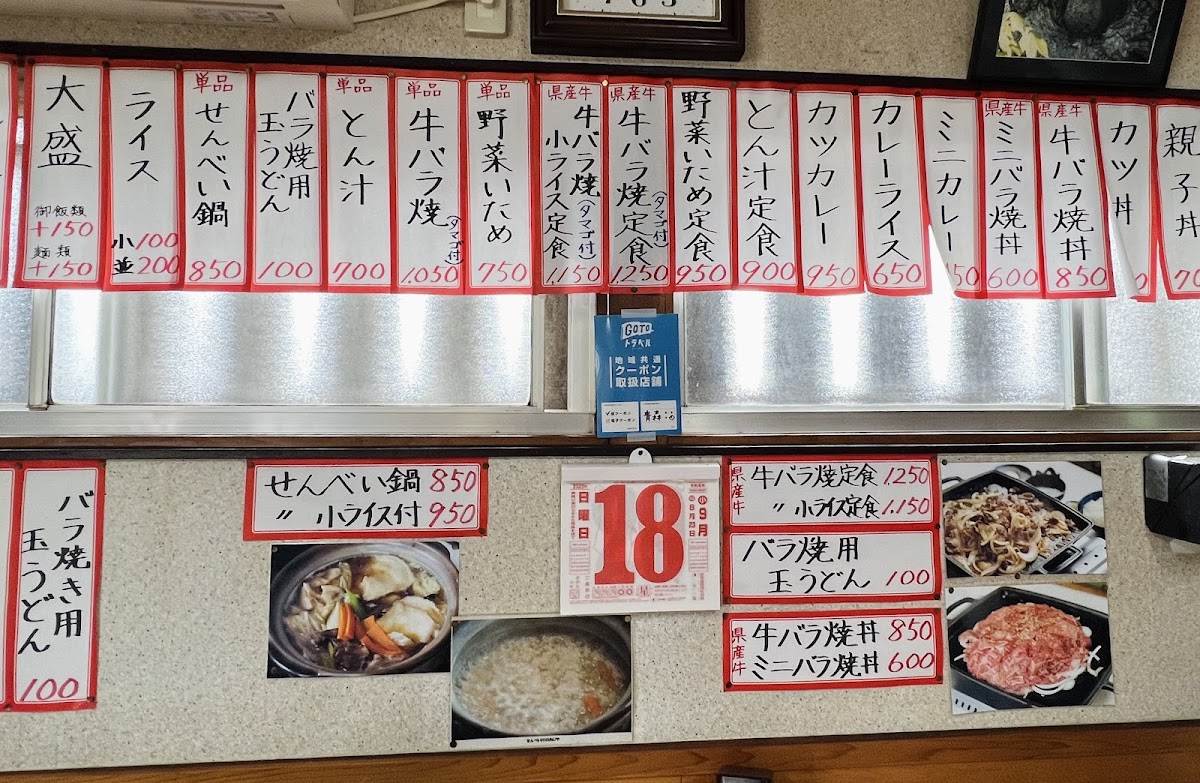 大盛
御飯類
+150
麺類
+150
ライス
小100
並200
単品
せんべい鍋
850
バラ焼用
玉うどん
100
単品
とん汁
700
単品
牛バラ焼
(タマゴ付)
1,050
単品
野菜いため
750
県産牛
牛バラ焼(タマゴ付)
小ライス定食
1,150
県産牛
牛バラ焼定食
(タマゴ付)
1,250
野菜いため定食
950
とん汁定食
900
カツカレー
950
カレーライス
650
ミニカレー
50
県産牛
ミニバラ焼丼
600
県産牛
牛バラ焼丼
850
カツ丼
親子丼
GOTO
トラベル
地域共通
クーポン
取扱店舗
青森
バラ焼き用
玉うどん
100
せんべい鍋 850
〃 小ライス付 950
日曜日
18
9月
小
8月23日
県産牛
牛バラ焼定食 1,250
〃 小ライス定食 1,150
バラ焼用
玉うどん 100
県産牛
牛バラ焼丼 850
ミニバラ焼丼 600